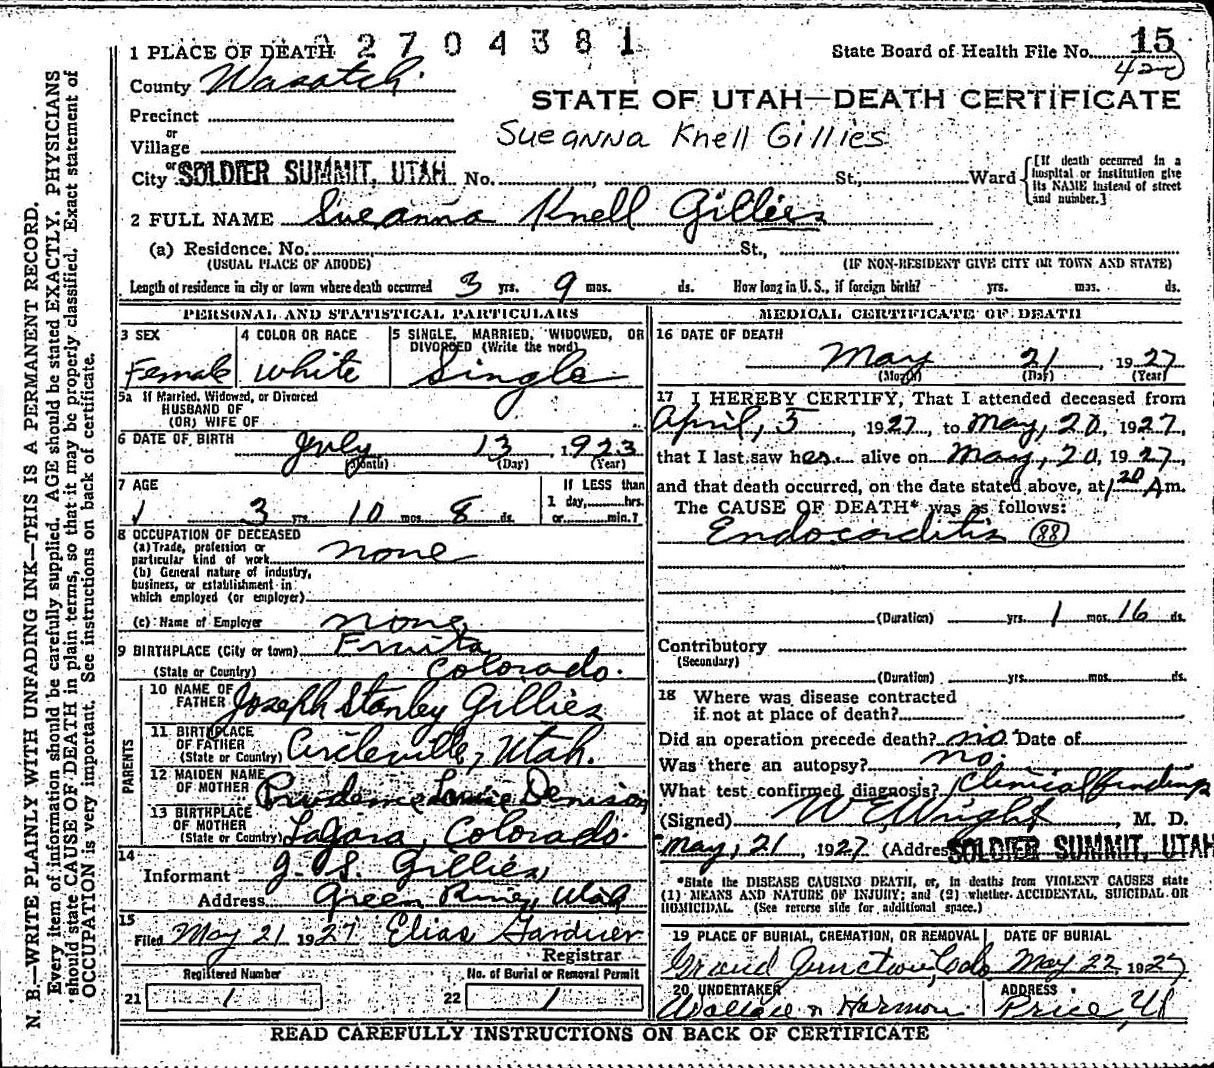 1 PLACE OF DEATH 2 7 0 4 3 8 1
State Board of Health File No. 15
420
County Wasatch.
STATE OF UTAH—DEATH CERTIFICATE
Precinct
Sueanna Knell Gillies
or
Village
or
City SOLDIER SUMMIT, UTAH No. , St., Ward
[If death occurred in a hospital or institution give its NAME instead of street and number.]
2 FULL NAME Sueanna Knell Gillies
(a) Residence, No. St.,
(USUAL PLACE OF ABODE) (IF NON-RESIDENT GIVE CITY OR TOWN AND STATE)
Length of residence in city or town where death occurred 3 yrs. 9 mos. ds. How long in U.S., if foreign birth? yrs. mos. ds.
PERSONAL AND STATISTICAL PARTICULARS
3 SEX Female
4 COLOR OR RACE white
5 SINGLE, MARRIED, WIDOWED, OR DIVORCED (Write the word) Single
5a If Married, Widowed, or Divorced
HUSBAND OF
(OR) WIFE OF
6 DATE OF BIRTH July 13, 1923
(Month) (Day) (Year)
7 AGE 3 yrs. 10 mos. 8 ds.
If LESS than
1 day, hrs.
or min.?
8 OCCUPATION OF DECEASED
(a) Trade, profession or
particular kind of work none
(b) General nature of industry,
business, or establishment in
which employed (or employer)
(c) Name of Employer none
9 BIRTHPLACE (City or town) Fruita
(State or Country) Colorado.
PARENTS
10 NAME OF FATHER Joseph Stanley Gillies
11 BIRTHPLACE OF FATHER
(State or Country) Circleville, Utah.
12 MAIDEN NAME OF MOTHER Prudence Louise Denison
13 BIRTHPLACE OF MOTHER
(State or Country) , Colorado.
14
Informant J. S. Gillies
Address Green River, Utah
15
Filed May 21 1927 Elias Gardner
Registrar
Registered Number No. of Burial or Removal Permit
21 1 22 1
MEDICAL CERTIFICATE OF DEATH
16 DATE OF DEATH
May 21, 1927
(Month) (Day) (Year)
17 I HEREBY CERTIFY, That I attended deceased from
April, 5, 1927, to May, 20, 1927,
that I last saw her alive on May, 20, 1927,
and that death occurred, on the date stated above, at 1 20 Am.
The CAUSE OF DEATH* was as follows:
Endocarditis (88)
(Duration) yrs. 1 mos. 16 ds.
Contributory
(Secondary)
(Duration) yrs. mos. ds.
18 Where was disease contracted
if not at place of death?
Did an operation precede death? no Date of
Was there an autopsy? no
What test confirmed diagnosis? Clinical findings
(Signed) W E Wright, M. D.
May, 21, 1927 (Address SOLDIER SUMMIT, UTAH
*State the DISEASE CAUSING DEATH, or, in deaths from VIOLENT CAUSES state
(1) MEANS AND NATURE OF INJURY; and (2) whether ACCIDENTAL, SUICIDAL OR
HOMICIDAL. (See reverse side for additional space.)
19 PLACE OF BURIAL, CREMATION, OR REMOVAL DATE OF BURIAL
Grand Junction, Colo May 22 1927
20 UNDERTAKER ADDRESS
Wallace n Harmon Price, Ut
READ CAREFULLY INSTRUCTIONS ON BACK OF CERTIFICATE
N. B.—WRITE PLAINLY WITH UNFADING INK—THIS IS A PERMANENT RECORD.
Every item of information should be carefully supplied. AGE should be stated EXACTLY. PHYSICIANS
should state CAUSE OF DEATH in plain terms, so that it may be properly classified. Exact statement of
OCCUPATION is very important. See instructions on back of certificate.